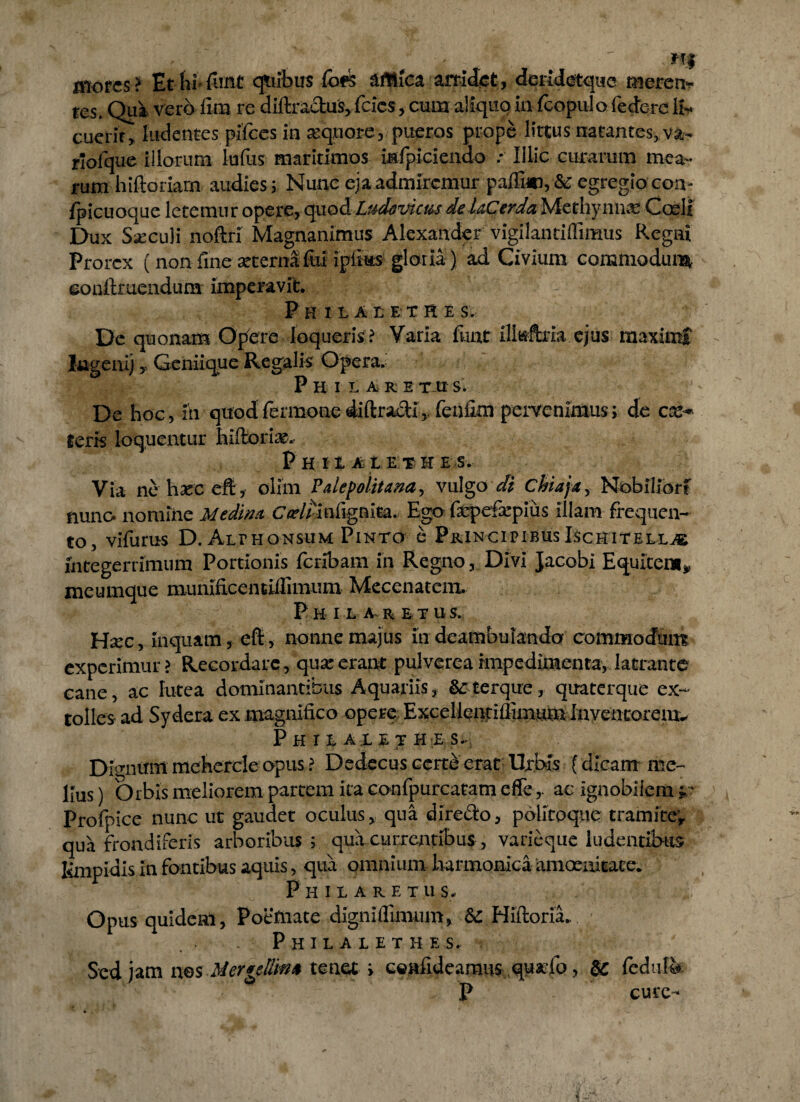 113
mores? Et hi ſunt quibus ſors amica arridet, deridetque meren-
tes. Quà verò ſim re diſtractus, ſcies, cum aliquo in ſcopulo ſedere li-
cuerit, ludentes piſces in æquore, pueros propè littus natantes, va-
rioſque illorum luſus maritimos inſpiciendo : Illic curarum mea-
rum hiſtoriam audies; Nunc eja admiremur paſſim, & egregio con-
ſpicuoque letemur opere, quod Ludovicus de laCerda Methymnæ Cœli
Dux Sæculi noſtri Magnanimus Alexander vigilantiſſimus Regni
Prorex ( non ſine æternâ ſui ipſius gloriâ ) ad Civium commodum
conſtruendum imperavit.
PHILALETHES.
De quonam Opere loqueris? Varia ſunt illuſtria ejus maximi
Ingenij, Geniique Regalis Opera.
PHILARETUS.
De hoc, in quod ſermone diſtracti, ſenſim pervenimus; de cæ-
teris loquentur hiſtoriæ.
PHILALETHES.
Via nè hæc eſt, olim Palepolitana, vulgo di Chiaja, Nobiliori
nunc nomine Medina Cœli inſignita. Ego ſæpeſæpius illam frequen-
to, viſurus D. ALPHONSUM PINTO è PRINCIPIBUS ISCHITELLÆ
integerrimum Portionis ſcribam in Regno, Divi Jacobi Equitem,
meumque munificentiſſimum Mecenatem.
PHILARETUS.
Hæc, inquam, eſt, nonne majus in deambulando commodum
experimur? Recordare, quæ erant pulverea impedimenta, latrante
cane, ac lutea dominantibus Aquariis, & terque, quaterque ex-
tolles ad Sydera ex magnifico opere Excellentiſſimum Inventorem.
PHILALETHES.
Dignum mehercle opus? Dedecus certè erat Urbis ( dicam me-
lius ) Orbis meliorem partem ita conſpurcatam eſſe, ac ignobilem;
Proſpice nunc ut gaudet oculus, quà directo, politoque tramite,
quà frondiferis arboribus ; quà currentibus, varièque ludentibus
limpidis in fontibus aquis, quà omnium harmonicà amœnitate.
PHILARETUS.
Opus quidem, Poëmate digniſſimum, & Hiſtoriâ.
PHILALETHES.
Sed jam nos Mergellina tenet ; conſideamus quæſo, & ſedulò
P cure-